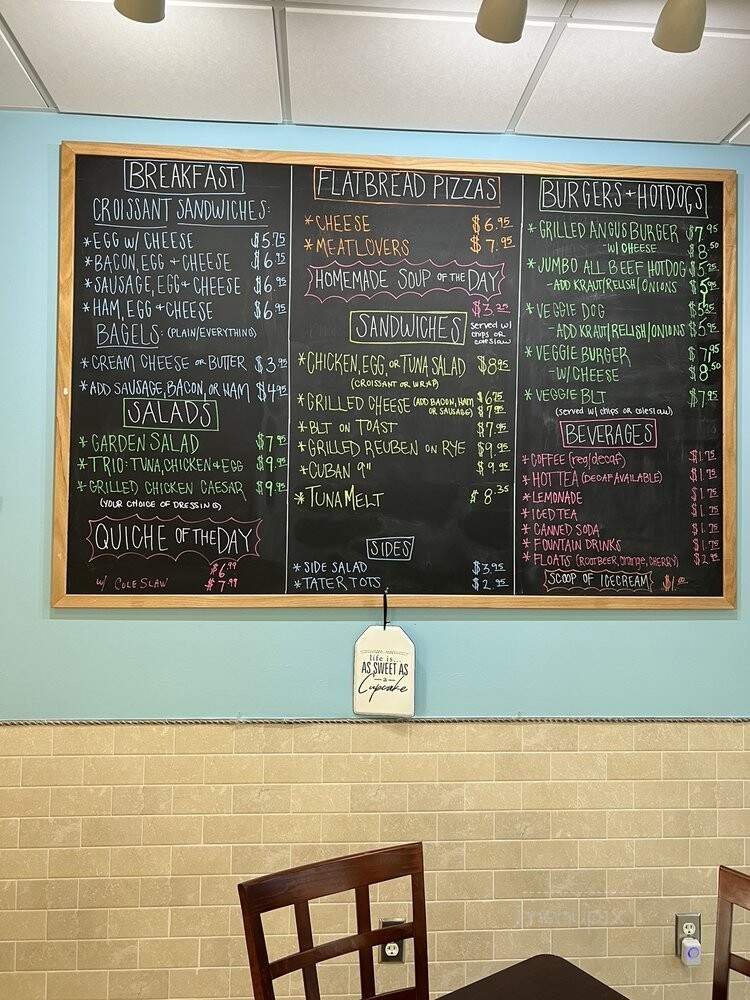 BREAKFAST
CROISSANT SANDWICHES:
*EGG W/ CHEESE $5.75
*BACON, EGG + CHEESE $6.75
*SAUSAGE, EGG + CHEESE $6.95
*HAM, EGG + CHEESE $6.95
BAGELS: (PLAIN/EVERYTHING)
*CREAM CHEESE OR BUTTER $3.95
*ADD SAUSAGE, BACON, OR HAM $4.95
SALADS
*GARDEN SALAD $7.95
*TRIO: TUNA, CHICKEN + EGG $9.95
*GRILLED CHICKEN CAESAR $9.95
(YOUR CHOICE OF DRESSING)
QUICHE OF THE DAY
$6.99
W/ COLESLAW $7.99
FLATBREAD PIZZAS
*CHEESE $6.95
*MEATLOVERS $7.95
HOMEMADE SOUP OF THE DAY
$3.25
SANDWICHES
served w/
chips or
coleslaw
*CHICKEN, EGG, OR TUNA SALAD $8.95
(CROISSANT OR WRAP)
*GRILLED CHEESE (ADD BACON, HAM $6.75
OR SAUSAGE) $7.95
*BLT ON TOAST $7.95
*GRILLED REUBEN ON RYE $9.95
*CUBAN 9" $9.95
*TUNA MELT $8.35
SIDES
*SIDE SALAD $3.95
*TATER TOTS $2.95
BURGERS + HOTDOGS
*GRILLED ANGUS BURGER $7.95
-W/ CHEESE $8.50
*JUMBO ALL BEEF HOTDOG
-ADD KRAUT/RELISH/ONIONS
*VEGGIE DOG
-ADD KRAUT/RELISH/ONIONS
*VEGGIE BURGER $7.95
-W/ CHEESE $8.50
*VEGGIE BLT $7.95
(served w/ chips or coleslaw)
BEVERAGES
*COFFEE (reg/decaf) $1.75
*HOT TEA (DECAF AVAILABLE) $1.75
*LEMONADE $1.75
*ICED TEA $1.75
*CANNED SODA $1.75
*FOUNTAIN DRINKS $1.75
*FLOATS (ROOTBEER, orange, CHERRY) $2.95
SCOOP OF ICECREAM $1.00
life is...
AS SWEET AS
a
Cupcake